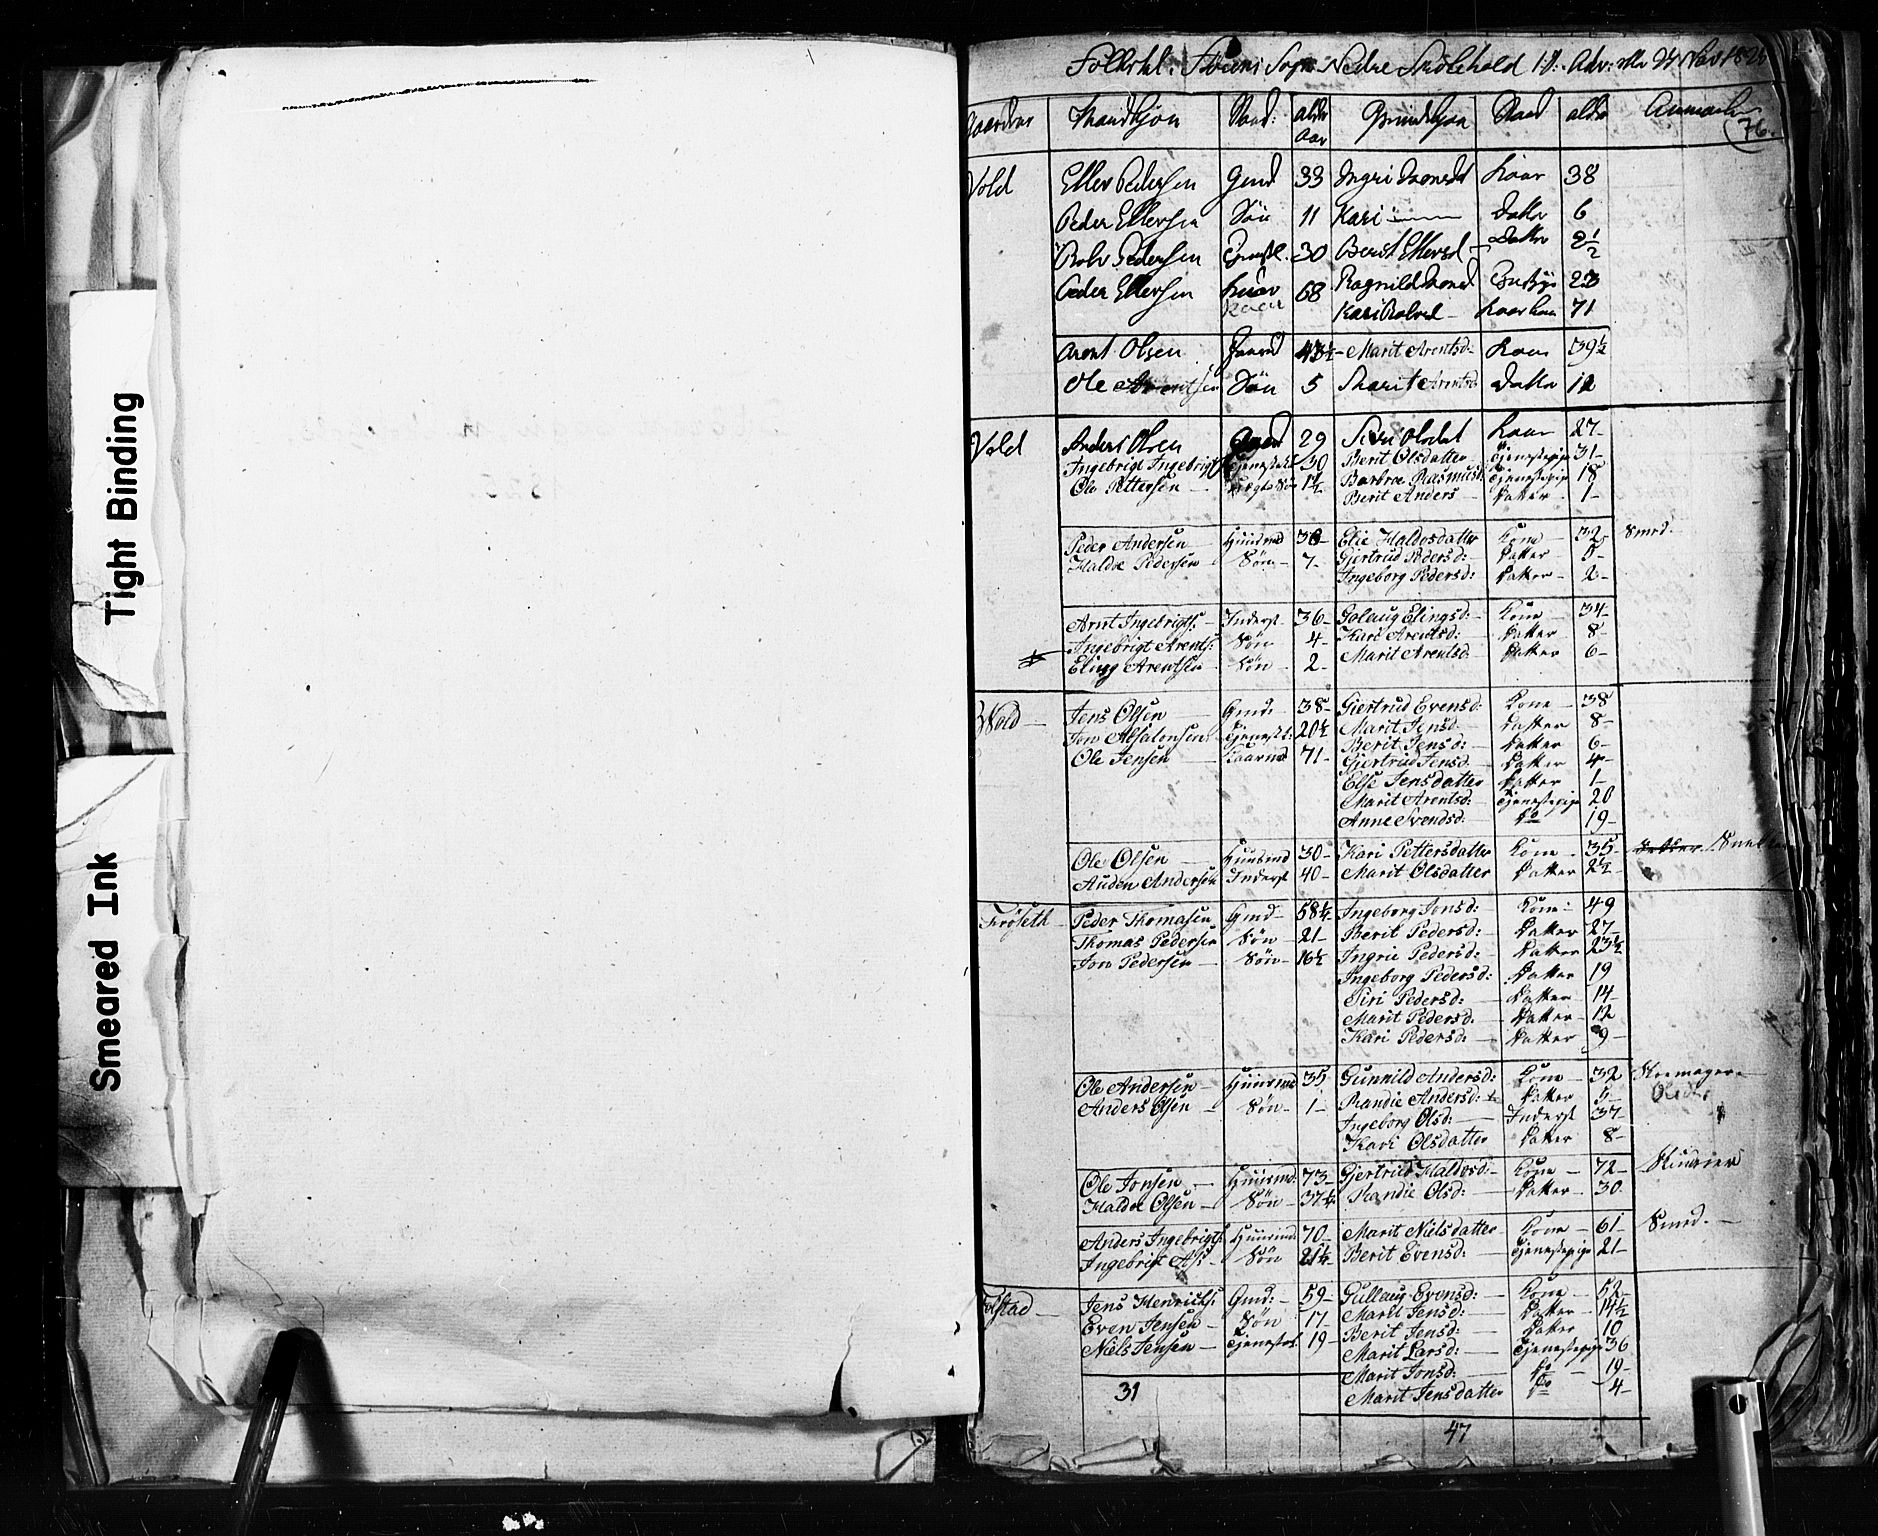 Tight Binding
Smeared Ink
Folketal: Størens Sogn Nedre
76.
Gaardene Mandkjøn Stand: alder aar Qvindekjøn Stand alder Anmærk
Vold Eller Pedersen Gmd 33 Ingri Kone 38
Peder Ellersen Søn 11 Kari Datter 6
Rolv Pedersen 30 Berit Ellersd Datter 2½
Peder Ellersen 68 Ragnild 23
Kari 71
Arent Olsen 43½ Marit Arentsd: Kone 39½
Ole Arentsen Søn 5 Marit Arentsd Datter 12
Vold Anders Olsen Gmd 29 Siri Olsdat Kone 27
Ingebrigt Ingebrigts Tjenestekl 30 Berit Olsdatter Tjenestepige 31
Ole Pettersen 1½ Barbroe Rasmusd Tjenestepige 18
Berit Anders Datter 1
Peder Andersen Huusmd 38 Elie Haldosdatter Kone 32 Smed.
Haldoe Pedersen Søn 7 Gjertrud Pedersd: Datter 5
Ingeborg Pedersd: Datter 2
Arnt Ingebrigts: Inderst 36 Golaug Elingsd: Kone 34
Ingebrigt Arents: Søn 4 Kari Arentsd: Datter 8
Eling Arentsen Søn 2 Marit Arentsd Datter 6
Wold Jens Olsen Gmd: 38 Giertrud Evensd: Kone 38
Jon Absalonsen Tjenestk: 20½ Marit Jensd Datter 8
Ole Jensen Kaarmd 71 Berit Jensd: Datter 6
Gjertrud Jensd: Datter 4
Else Jensdatter Datter 1
Marit Arentsd: Tjenestepige 20
Anne Svendsd: do 19
Ole Olsen Huusmd 30 Kari Pettersdatter Kone 35
Auden Andersen Inderst 40 Marit Olsdatter Datter 2½
Frøseth Peder Thomasen Gmd 58½ Ingeborg Jonsd: Kone 49
Thomas Pedersen Søn 21 Berit Pedersd: Datter 27
Jon Pedersen Søn 16½ Ingrie Pedersd: Datter 23½
Ingeborg Pedersd: Datter 19
Siri Pedersd: Datter 14
Marit Pedersd: Datter 12
Kari Pedersd: Datter 9
Ole Andersen Huusmd 35 Gunnild Andersd: Kone 32 Skoemager
Anders Olsen Søn 1 Randie Andersd: Datter 5
Ingeborg Olsd: Inderst 37
Kari Olsdatter Datter 8
Ole Jonsen Huusmd: 73 Gjertrud Haldosd: Kone 72
Haldoe Olsen Søn 37½ Randie Olsd: Datter 30
Anders Ingebrigts: Huusmd 70 Marit Nielsdatter Kone 61 Smed.
Ingebrigt As: Søn 21½ Berit Evensd: Tjenestepige 21
Folstad Jens Henrichs: Gmd: 59 Gullaug Evensd: Kone 52
Even Jensen Søn 17 Marit Jensd: Datter 14½
Niels Jensen 19 Berit Jensd: Datter 10
Marit Larsd: Tjenestepige 36
Marit Jonsd: do 19
Marit Jensdatter do 4
31
47